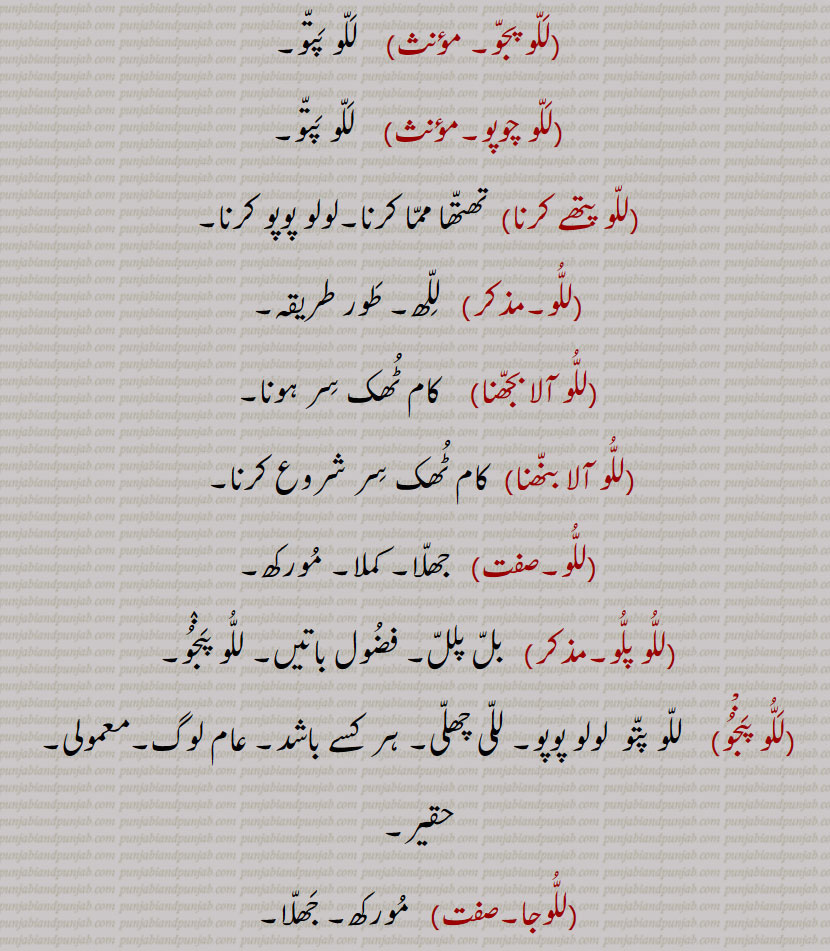 (لَلّو پجوّ۔ مؤنث) لَلّو پَپتّو۔
(لَلّو چوپو۔مؤنث) لَلّو پَپتّو۔
(للّو پتھے کرنا) تھتھّا ممّا کرنا۔لولو پوپو کرنا۔
(للُّو۔مذکر) لِلّھ۔ طَور طریقہ۔
(للُّو آلا بجھّنا) کام ٹُھک سِر ہونا۔
(للُّو آلا بنّھنا) کام ٹُھک سِر شروع کرنا۔
(للُّو۔صفت) جھلّا۔ کملا۔ مُورکھ۔
(للُّو پلُّو۔مذکر) بلّ پللّ۔ فضُول باتیں۔ للُّو پَنجُوْ۔
(لَلُّو پَنجُوْ) للّو پتّو لولو پوپو۔ للّی چھلّی۔ ہر کسے باشد۔ عام لوگ۔معمولی۔
حقیر۔
(للُّوجا۔صفت) مُورکھ۔ جَھلّا۔